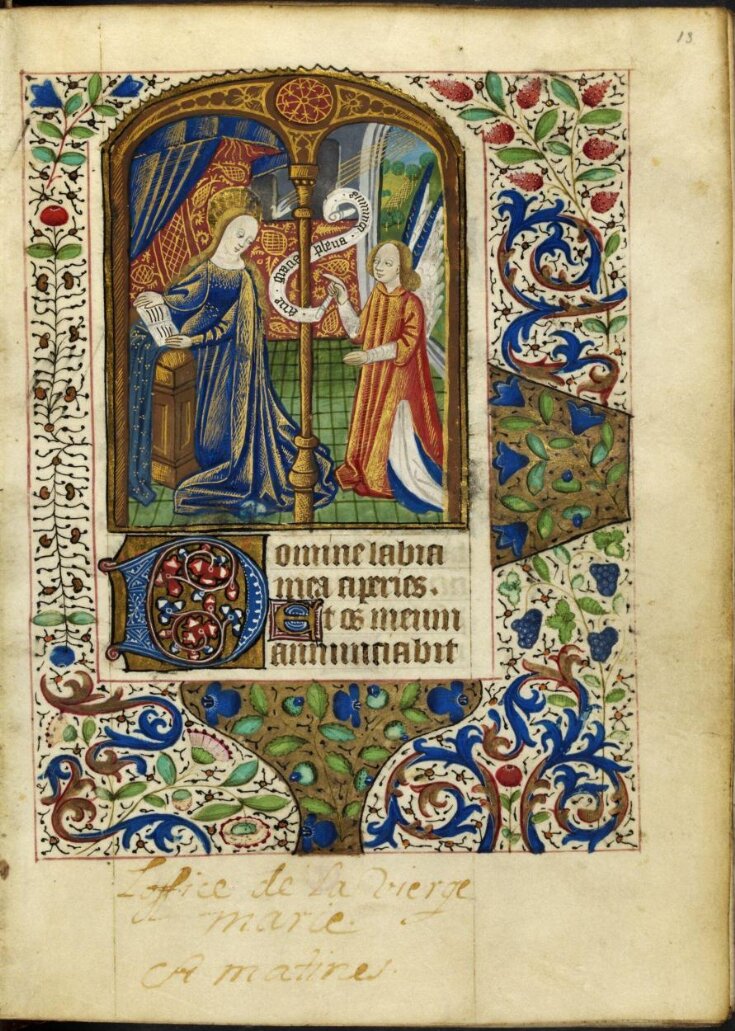 13
Aue gracia plena . dominus
Domine labia
mea aperies .
Et os meum
annunciabit
L'office de la vierge
marie
A matines.